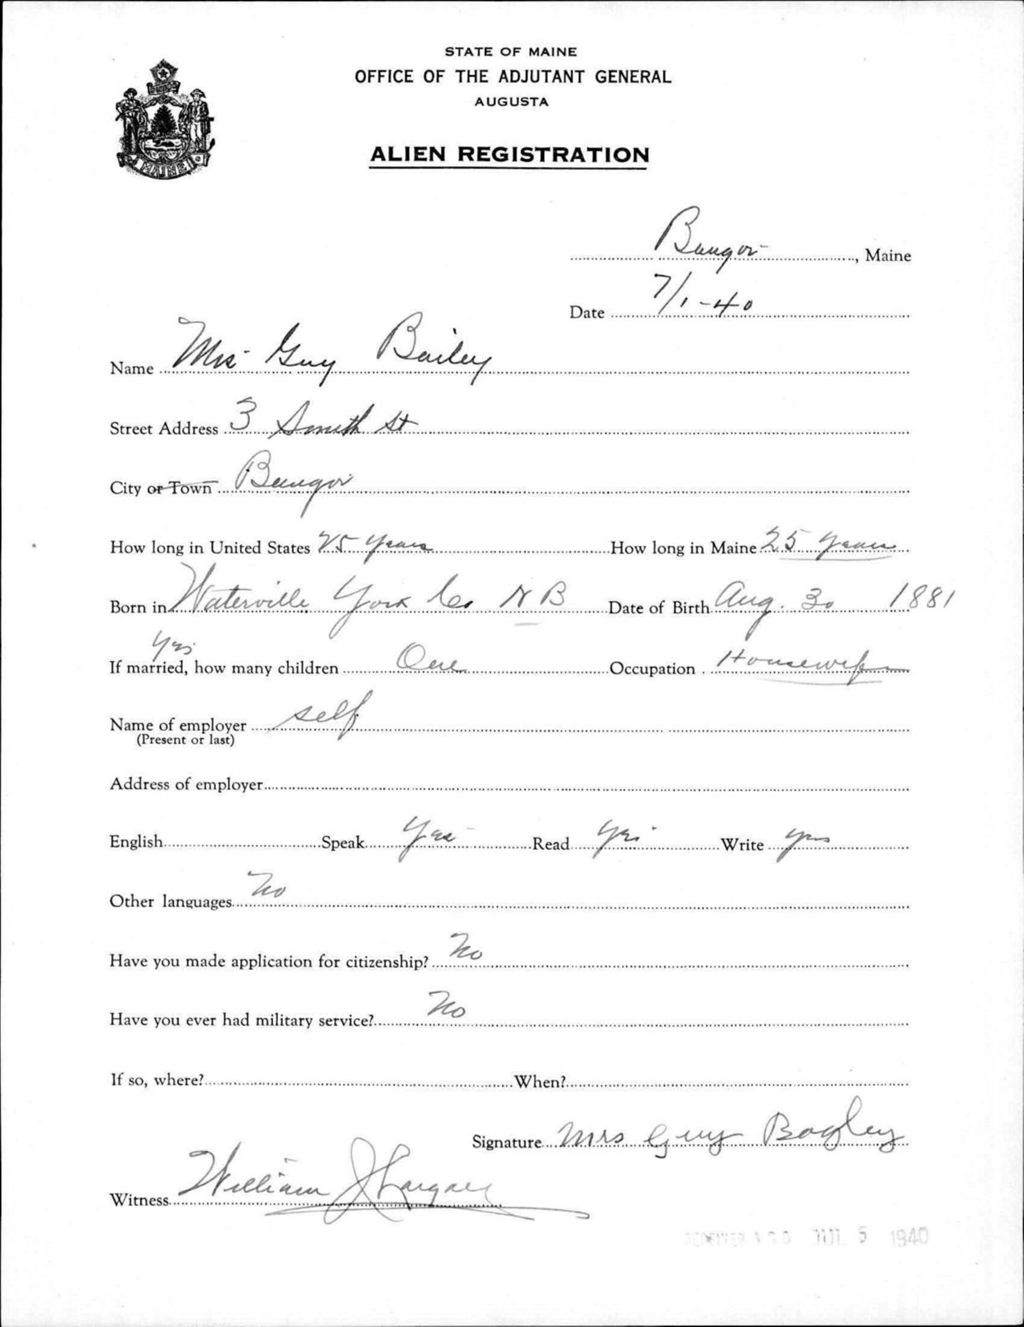 STATE OF MAINE
OFFICE OF THE ADJUTANT GENERAL
AUGUSTA
ALIEN REGISTRATION
MAINE
Bangor, Maine
Date 7/1-40
Name Mrs Guy Bailey
Street Address 3 Smith St
City or Town Bangor
How long in United States 25 years How long in Maine 25 years
Born in Waterville York Co N B Date of Birth Aug. 30 1881
Yes
If married, how many children One Occupation Housewife
Name of employer self
(Present or last)
Address of employer
English Speak Yes Read Yes Write yes
Other languages No
Have you made application for citizenship? No
Have you ever had military service? No
If so, where? When?
Signature Mrs Guy Bagley
Witness William J
1940